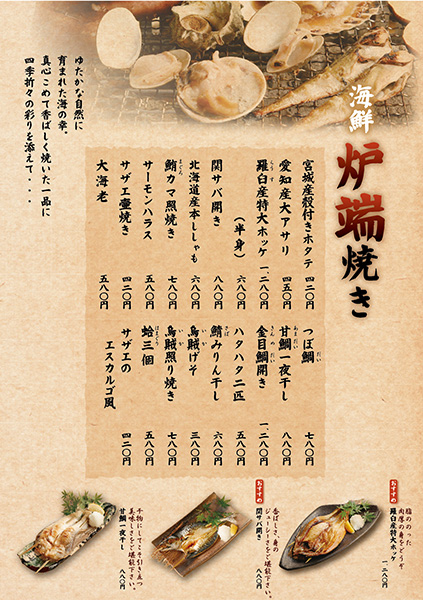 海鮮
炉端焼き
宮城産殻付きホタテ 四二〇円
愛知産大アサリ 四五〇円
羅臼産特大ホッケ 一、二八〇円
(半身) 六八〇円
関サバ開き 八八〇円
北海道産本ししゃも 六八〇円
鮪カマ照焼き 七八〇円
サーモンハラス 五八〇円
サザエ壷焼き 四二〇円
大海老 五八〇円
つぼ鯛 七八〇円
甘鯛一夜干し 八八〇円
金目鯛開き 一、二八〇円
ハタハタ二匹 五八〇円
鯖みりん干し 六八〇円
烏賊げそ 三八〇円
烏賊照り焼き 七八〇円
蛤三個 五八〇円
サザエの
エスカルゴ風 四二〇円
ゆたかな自然に
育まれた海の幸。
真心こめて香ばしく焼いた一品に
四季折々の彩りを添えて・・・
おすすめ
脂ののった
肉厚の身をどうぞ
羅臼産特大ホッケ
一、二八〇円
おすすめ
香ばしさ、身の
ジューシーさをご堪能下さい。
関サバ開き
八八〇円
干物にしてこそ引き立つ
美味しさをご堪能下さい。
甘鯛一夜干し
八八〇円